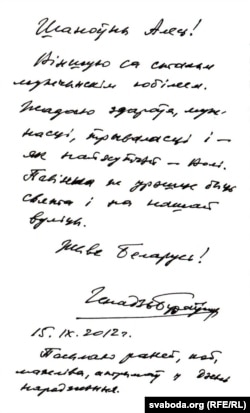 Шаноўны Алесь!
Віншую са сталым
мужчынскім юбілеем.
Жадаю здароўя, муж-
насці, трываласці і –
як найхутчэй – волі.
Павінна ж урэшце быць
свята і на нашай
вуліцы.
Жыве Беларусь!
15.IX.2012 г.
Пасылаю раней, каб,
магчыма, атрымаў у дзень
нараджэння.
svaboda.org (RFE/RL)